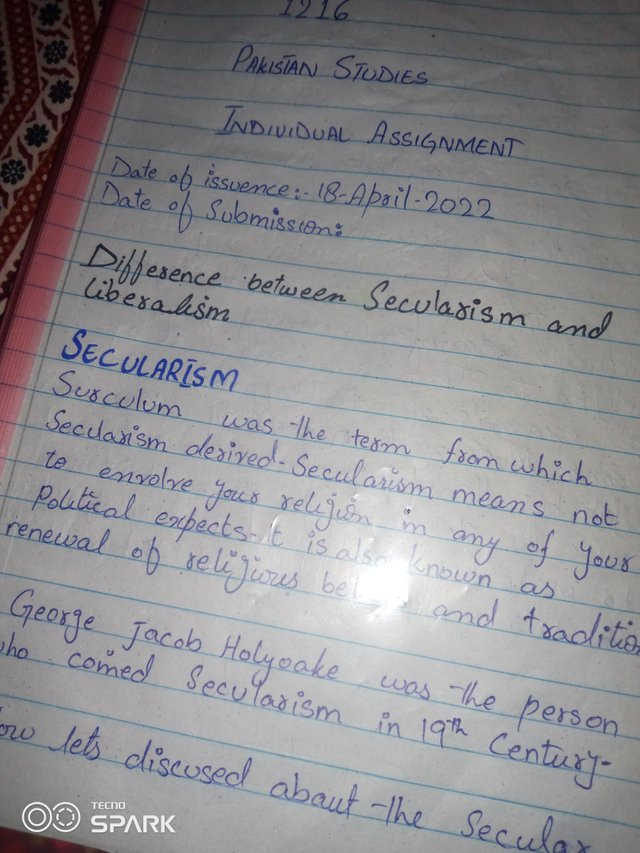 1216
PAKISTAN STUDIES
INDIVIDUAL ASSIGNMENT
Date of issuence:- 18-April-2022
Date of Submission:
Difference between Secularism and
liberalism
SECULARISM
Surculum was the term from which
Secularism derived. Secularism means not
to envolve your religion in any of your
Political expects. it is also known as
renewal of religious and tradition
George Jacob Holyoake was the person
who comed Secularism in 19th Century-
lets discused about the Secular
TECNO
SPARK